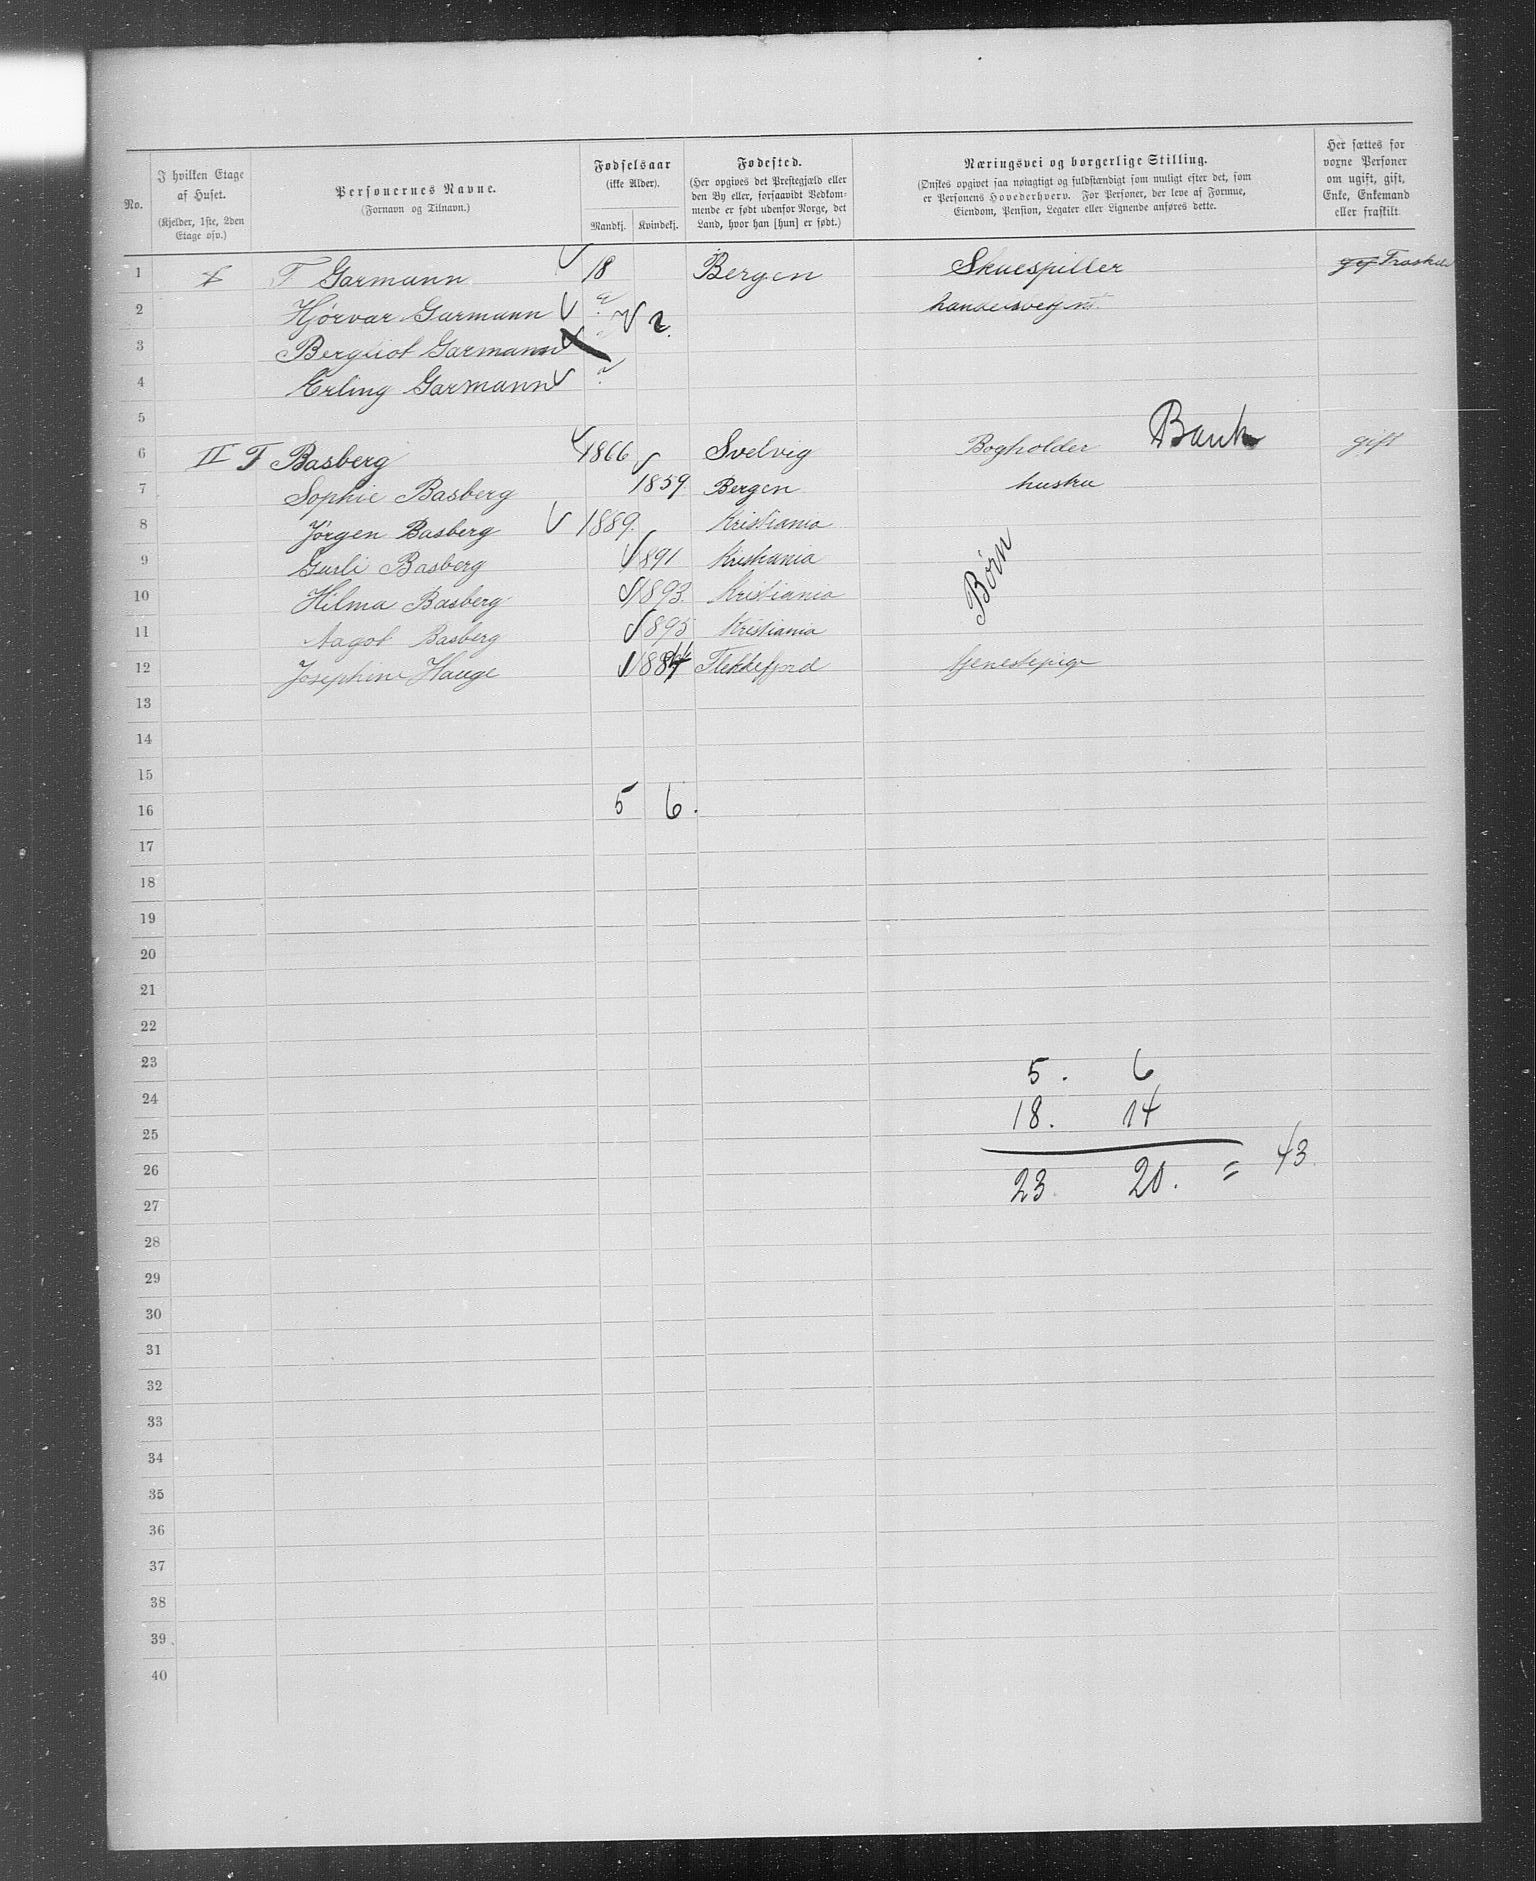 No.
I hvilken Etage af Huset.
(Kjelder, 1ste, 2den Etage osv.)
Personernes Navne.
(Fornavn og Tilnavn.)
Fødselsaar
(ikke Alder).
Mandkj. Kvindekj.
Fødested.
(Her opgives det Prestegjæld eller den By eller, forsaavidt Vedkommende er født udenfor Norge, det Land, hvor han [hun] er født.)
Næringsvei og borgerlige Stilling.
(Ønskes opgivet saa nøiagtigt og fuldstændigt som muligt efter det, som er Personens Hovederhverv. For Personer, der leve af Formue, Eiendom, Pension, Legater eller Lignende anføres dette.
Her sættes for voxne Personer om ugift, gift, Enke, Enkemand eller fraskilt.
1 F Garmann 18 Bergen Skuespiller
2 Hjørvar Garmann ?
3 Bergliot Garmann ?
4 Erling Garmann ?
5
6 II F Basberg 1866 Svelvig Bogholder Bank gift
7 Sophie Basberg 1859 Bergen hustru
8 Jørgen Basberg 1889 Kristiania
9 Gusli Basberg 1891 Kristiania
10 Hilma Basberg 1893 Kristiania Børn
11 Aagot Basberg 1895 Kristiania
12 Josephine Hauge Flekkefjord tjenestepige
13
14
15
16 5 6.
17
18
19
20
21
22
23 5. 6
24 18. 14
25
26 23. 20. = 43
27
28
29
30
31
32
33
34
35
36
37
38
39
40